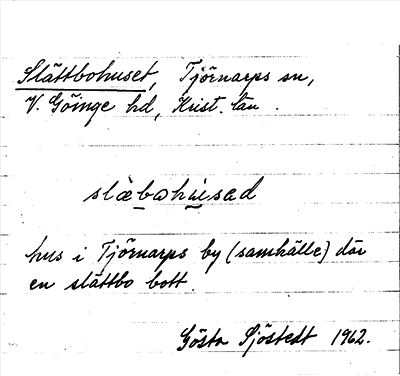 Slättbohuset, Tjörnarps sn,
V. Göinge hd, Krist. län.
slàbohúsad
hus i Tjörnarps by (samhälle) där
en slättbo bott.
Gösta Sjöstedt 1962.